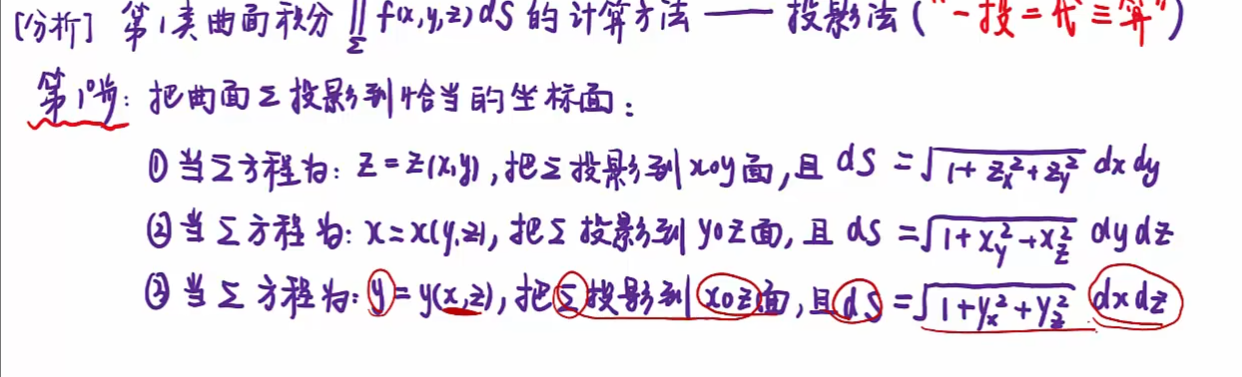 [分析] 第1类曲面积分 ∬_Σ f(x,y,z)dS 的计算方法 —— 投影法 ("一投二代三算")
第1步: 把曲面Σ投影到恰当的坐标面:
① 当Σ方程为: z = z(x,y), 把Σ投影到xoy面, 且 dS = √(1+z_x²+z_y²) dxdy
② 当Σ方程为: x = x(y,z), 把Σ投影到yoz面, 且 dS = √(1+x_y²+x_z²) dydz
③ 当Σ方程为: y = y(x,z), 把Σ投影到xoz面, 且 dS = √(1+y_x²+y_z²) dxdz